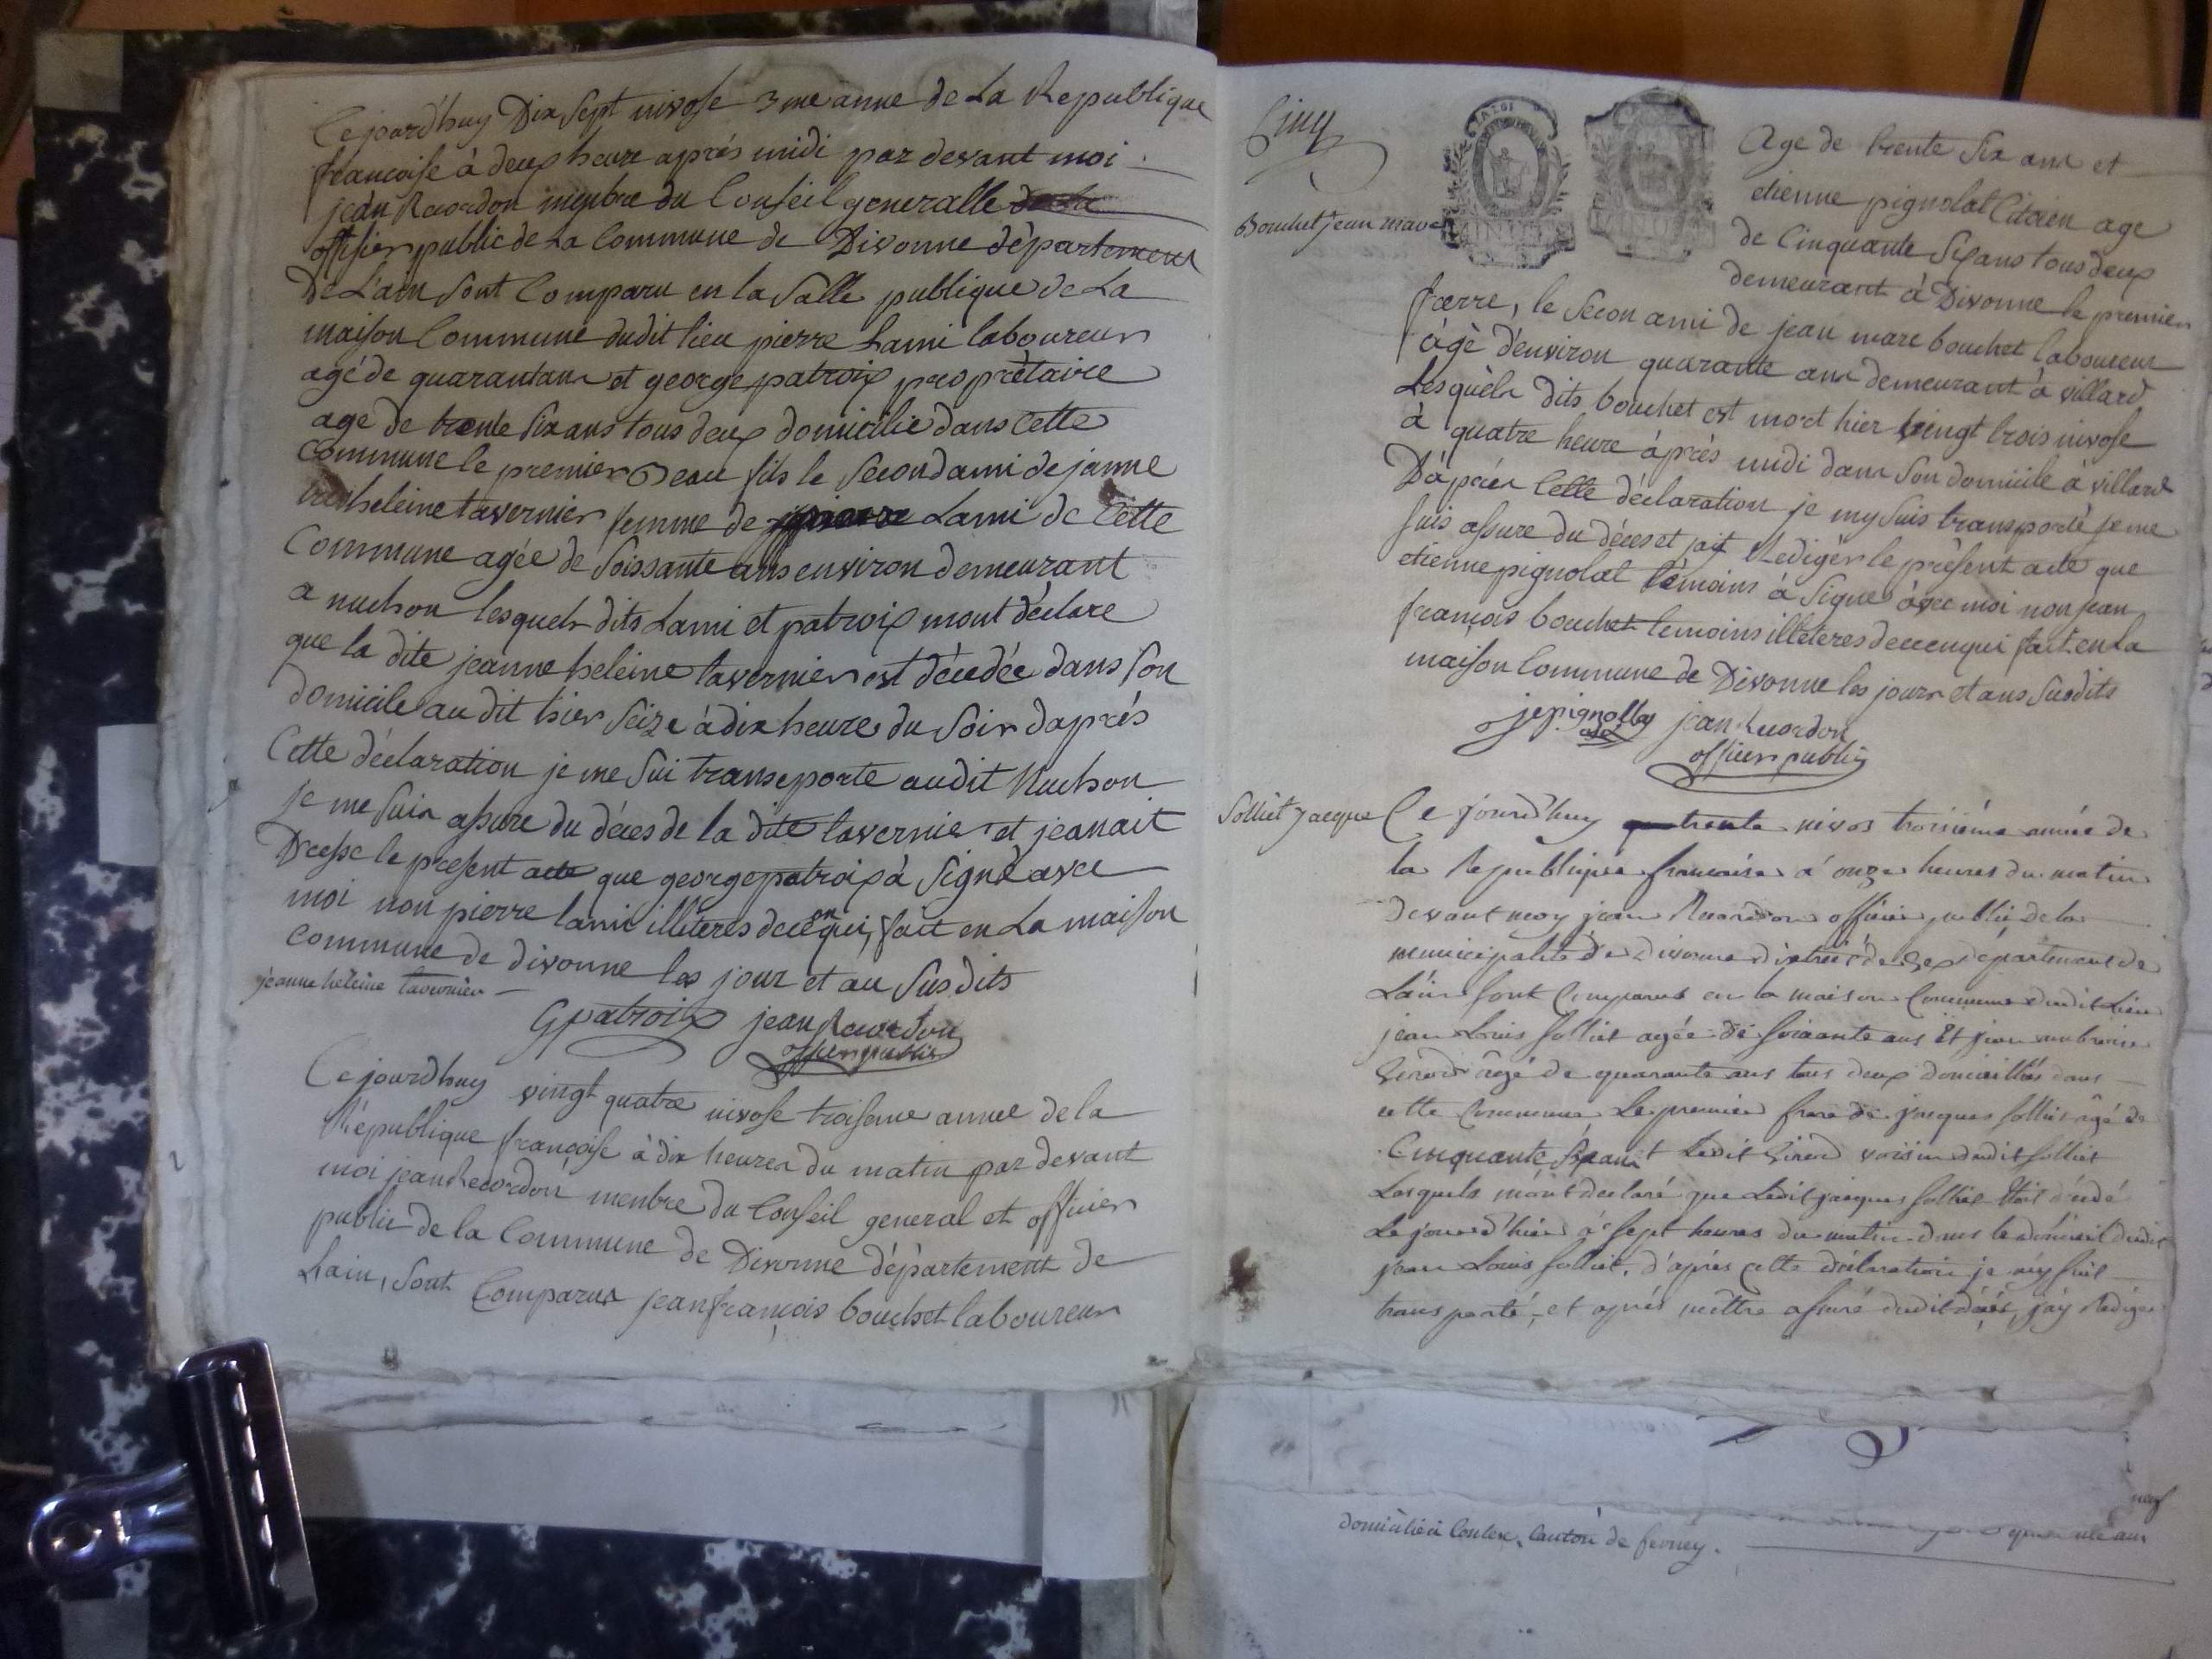 Cejourd'huy Dix sept nivose 3me anne de La Republique
francoise à deux heure aprés midi par devant moi
jean Recordon menbre du Conseil generalle
offisier public de La Commune de Divonne département
De L'ain sont Comparu en la Salle publique de La
maison Commune dudit lieu pierre Lami laboureur
agé de quarantans et george patroix propriètaire
age de trente six ans tous deux domicilie dans Cette
Commune le premier Beau fils le Second ami de janne
heleine tavernier femme de Lami de Cette
Commune agée de Soissante ans environ demeurant
a nuchon lesquels dits Lami et patroix mont déclare
que la dite jeanne heleine tavernier est décedée dans son
domicile au dit hier seize à dix heure du Soir daprés
Cette déclaration je me sui transporte audit Nuchon
je me suis assure du déces de la dite tavernier et jeanait
Dresse le present acte que george patroix à Signé avec
moi non pierre lami illiteres de ce enquis, fait en La maison
commune de divonne les jour et an Susdits
jeanne heleine tavernier
G patroix jean Recordon
offisier public
Cejourdhuy vingt quatre nivose troiseme annee de la
République françoise à dix heures du matin par devant
moi jean Recordon menbre du Conseil general et officier
public de la Commune de Divonne département de
Lain, sont Comparus jean françois bouchet laboureur
Cinq
Bouchet jean marc
Age de trente Six ans et
etienne pignolat Citoien age
de Cinquante Six ans tous deux
demeurant à Divonne le premier
frerre, le Secon ami de jean marc bouchet laboureur
âgè d'environ quarante ans demeurant à villard
Lesquels dits bouchet est mort hier vingt trois nivose
à quatre heure àprès midi dans Son domicile à villard
D'àprés Cette déclaration je my suis transporté je me
suis assure du déces et jait Redigér le présent acte que
etienne pignolat témoins à Signe àvec moi non jean
françois bouchet temoins illeteres de ce enquis fait en La
maison Commune de Divonne les jours et ans Susdits
jepignollat jean Recordon
officier public
Solliet Jacque
Ce jourd'huy trente nivos troisiéme année de
la Republique francaise à onze heures du matin
devant moy jean Recordon officier public de la
municipalité de Divonne district de Gex département de
L'ain sont Comparus en la maison Commune dudit Lieu
jean Louis Solliet agée de soixante ans Et jean
Girod âgé de quarante ans tous deux domiciliés dans
cette Commune Le premier frere de jacques Solliet âgé de
Cinquante six ans et Ledit Girod voisin dudit Solliet
Lesquels m'ont declaré que Ledit jacques Solliet était décédé
Le jour d'hier à sept heures du matin dans le domicil dudit
jean Louis Solliet, d'aprés cette déclaration je m'y suis
transporté, et aprés m'être assuré dudit décés, j'ay Rediger
domicilié à Contex. Canton de ferney.